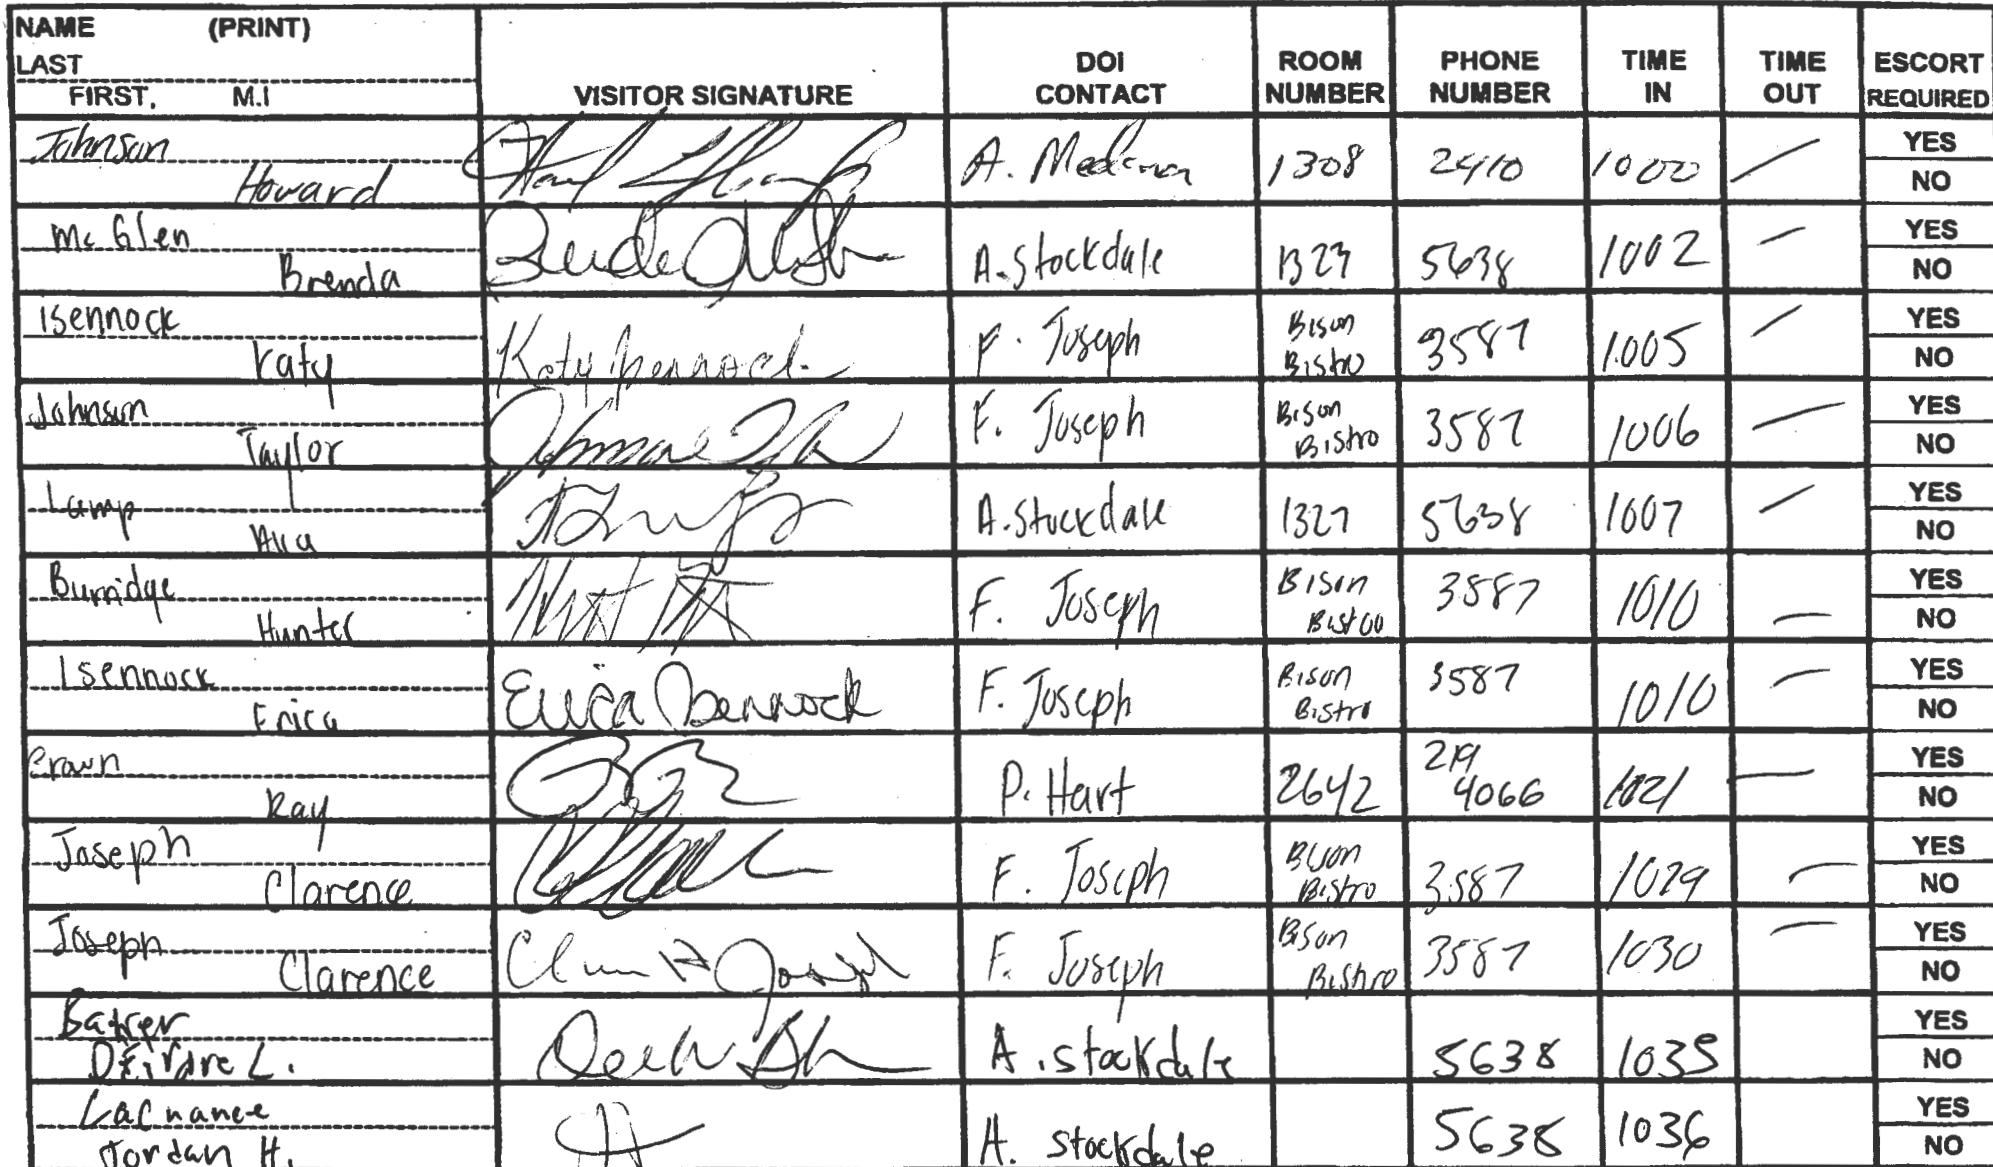 NAME (PRINT)
LAST
FIRST, M.I
VISITOR SIGNATURE
DOI CONTACT
ROOM NUMBER
PHONE NUMBER
TIME IN
TIME OUT
ESCORT REQUIRED
Johnson Howard A. 1308 2410 1000 — YES NO
McGlen Brenda A. Stockdale 1327 5638 1002 — YES NO
Isennock Katy Katy Isennock F. Joseph Bison Bistro 3587 1005 — YES NO
Johnson Taylor F. Joseph Bison Bistro 3587 1006 — YES NO
Lamp A. Stockdale 1327 5638 1007 — YES NO
Burridge Hunter F. Joseph Bison Bistro 3587 1010 — YES NO
Isennock Erica Erica Isennock F. Joseph Bison Bistro 3587 1010 — YES NO
Ray P. Hart 2642 219 4066 1021 — YES NO
Joseph Clarence F. Joseph Bison Bistro 3587 1029 — YES NO
Joseph Clarence F. Joseph Bison Bistro 3587 1030 — YES NO
Deirdre L. A. Stockdale 5638 1035 YES NO
Jordan H. A. Stockdale 5638 1036 YES NO